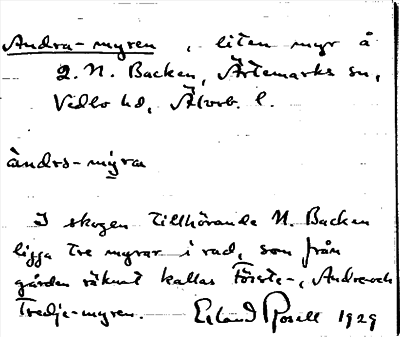 Andra-myren, liten myr å
2. N. Backen, Ärtemarks sn,
Vedbo hd, Älvsb. l.
àndrs-my̍ra
I skogen tillhörande N. Backen
ligga tre myrar i rad, som från
gården räknat kallas Förste-, Andre- och
Tredje-myren. Erland Rosell 1929